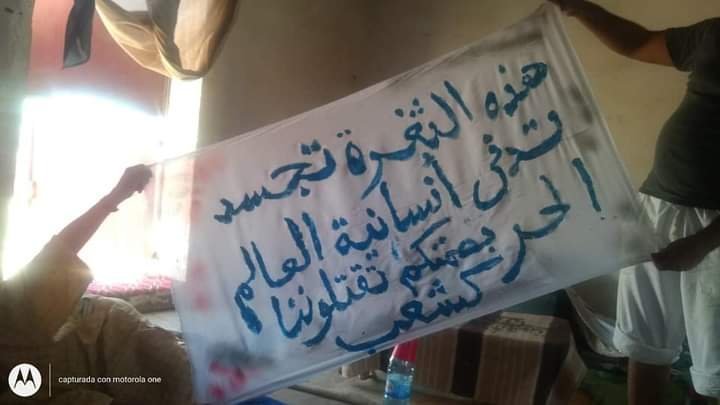 هذه الثغرة تجسد
تدفى أنسانية العالم
الحر بصمتكم تقتلوننا
كشعب
capturada con motorola one